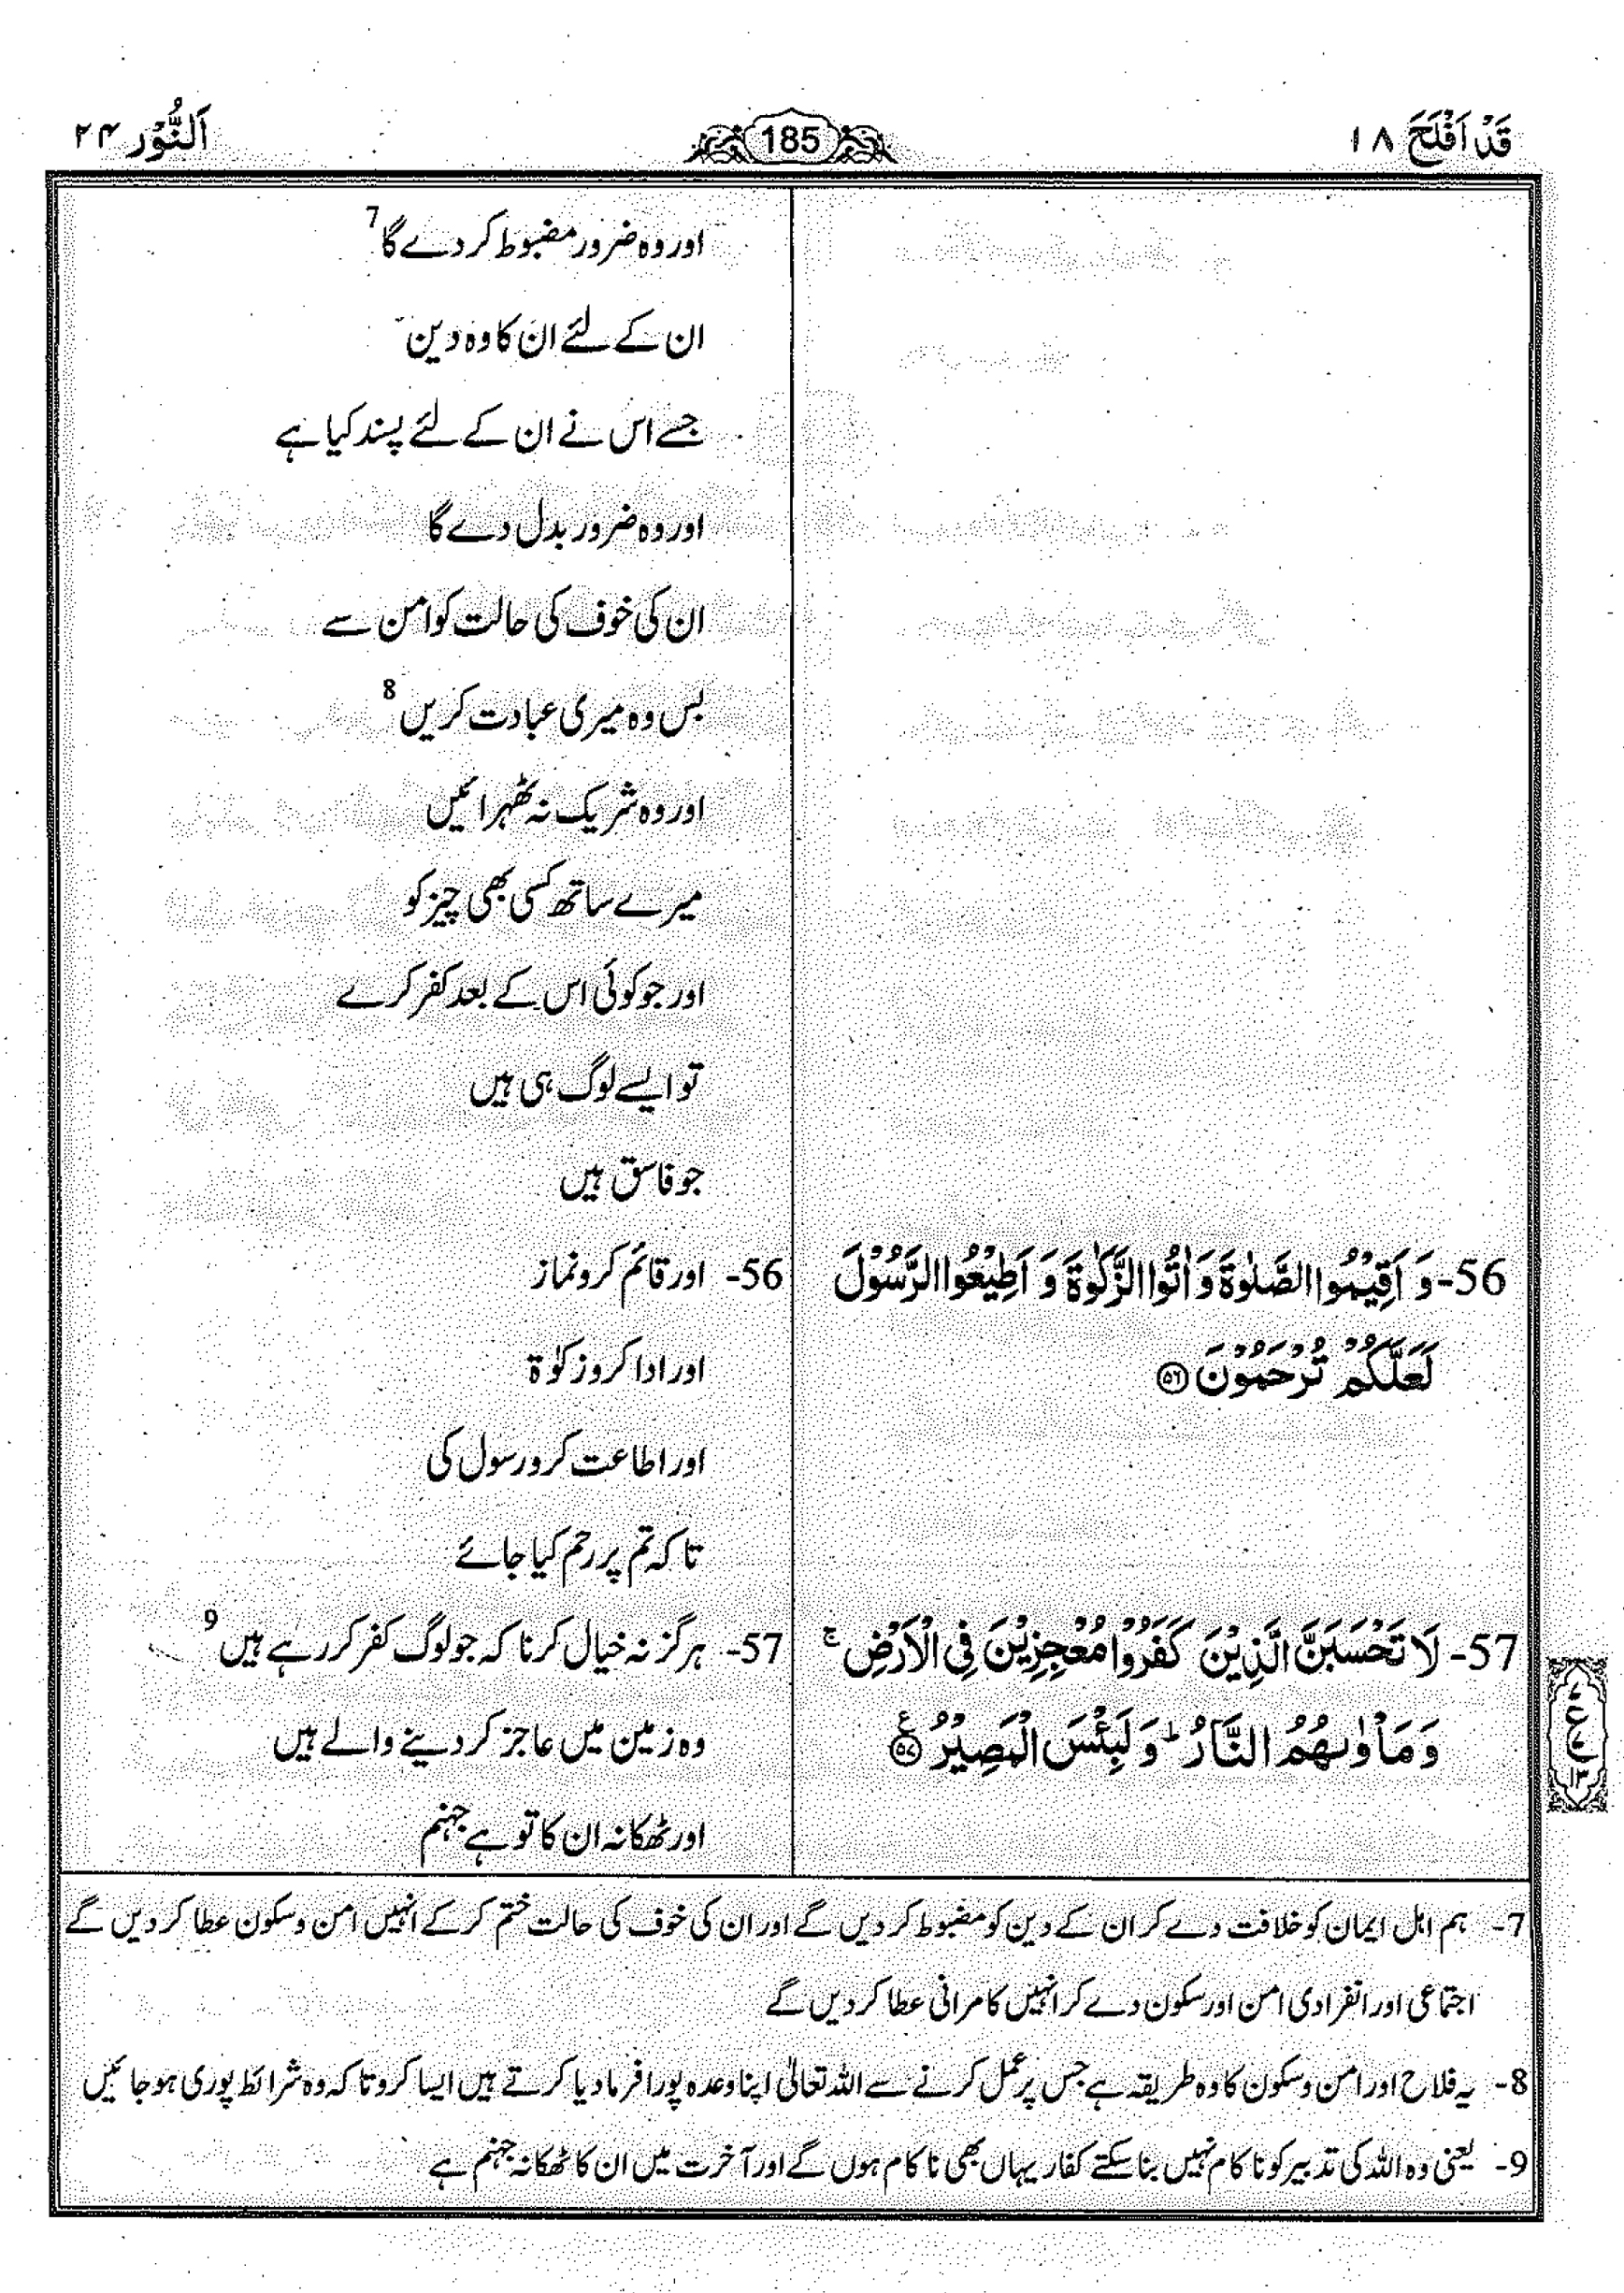 قَدْ اَفْلَحَ ۱۸
185
اَلنُّوْر ۲۴
اور وہ ضرور مضبوط کر دے گا 7
ان کے لئے ان کا وہ دین
جسے اس نے ان کے لئے پسند کیا ہے
اور وہ ضرور بدل دے گا
ان کی خوف کی حالت کو امن سے
بس وہ میری عبادت کریں 8
اور وہ شریک نہ ٹھہرائیں
میرے ساتھ کسی بھی چیز کو
اور جو کوئی اس کے بعد کفر کرے
تو ایسے لوگ ہی ہیں
جو فاسق ہیں
56- وَ اَقِيْمُوا الصَّلٰوةَ وَ اٰتُوا الزَّكٰوةَ وَ اَطِيْعُوا الرَّسُوْلَ
لَعَلَّكُمْ تُرْحَمُوْنَ ۵۶
56- اور قائم کرو نماز
اور ادا کرو زکوٰۃ
اور اطاعت کرو رسول کی
تاکہ تم پر رحم کیا جائے
57- لَا تَحْسَبَنَّ الَّذِيْنَ كَفَرُوْا مُعْجِزِيْنَ فِي الْاَرْضِ ۚ
وَ مَاْوٰىهُمُ النَّارُ ؕ وَ لَبِئْسَ الْمَصِيْرُ ۵۷
ع
۷
ع
۱۳
57- ہرگز نہ خیال کرنا کہ جو لوگ کفر کر رہے ہیں 9
وہ زمین میں عاجز کر دینے والے ہیں
اور ٹھکانہ ان کا تو ہے جہنم
7- ہم اہل ایمان کو خلافت دے کر ان کے دین کو مضبوط کر دیں گے اور ان کی خوف کی حالت ختم کر کے انہیں امن و سکون عطا کر دیں گے
اجتماعی اور انفرادی امن اور سکون دے کر انہیں کامرانی عطا کر دیں گے
8- یہ فلاح اور امن و سکون کا وہ طریقہ ہے جس پر عمل کرنے سے اللہ تعالیٰ اپنا وعدہ پورا فرما دیا کرتے ہیں ایسا کرو تاکہ وہ شرائط پوری ہو جائیں
9- یعنی وہ اللہ کی تدبیر کو ناکام نہیں بنا سکتے کفار یہاں بھی ناکام ہوں گے اور آخرت میں ان کا ٹھکانہ جہنم ہے